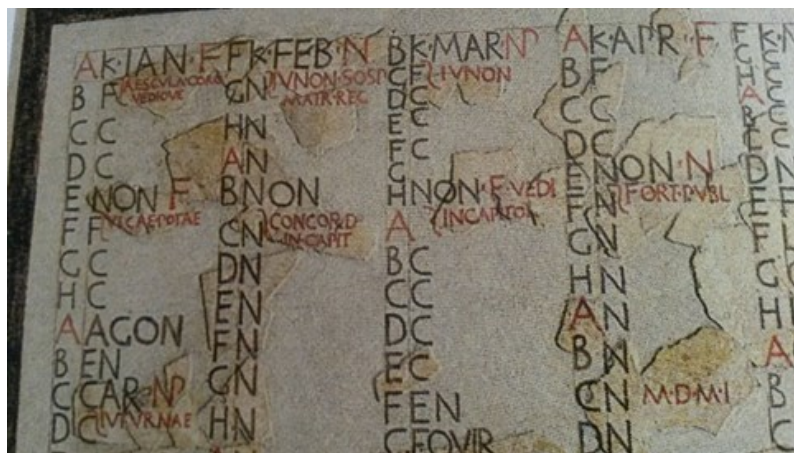 A K·IAN·F
AESCVLAPO COAE
VEDIOVE
B F
C C
D C
E NON F
VICAE POTAE
F F
G C
H C
A AGON
B EN
C CAR·NP
IVTVRNAE
D C
F K·FEB·N
IVNON·SOSP
MATR·REG
G N
H N
A N
B NON
CONCORD
IN·CAPIT
C N
D N
E N
F N
G N
H N
B K·MAR·NP
IVNON
C F
D C
E C
F C
G C
H NON·F·VEDI
IN CAPITOL
A
B C
C C
D C
E C
F EN
G EQVIR
A K·APR·F
B F
C C
D C
E NON·N
FORT·PVBL
F N
G N
H N
A N
B N
C N M·D·M·I
D N
F K
G
H
A
B
C
D N
E F
F
G
H
A
B
C